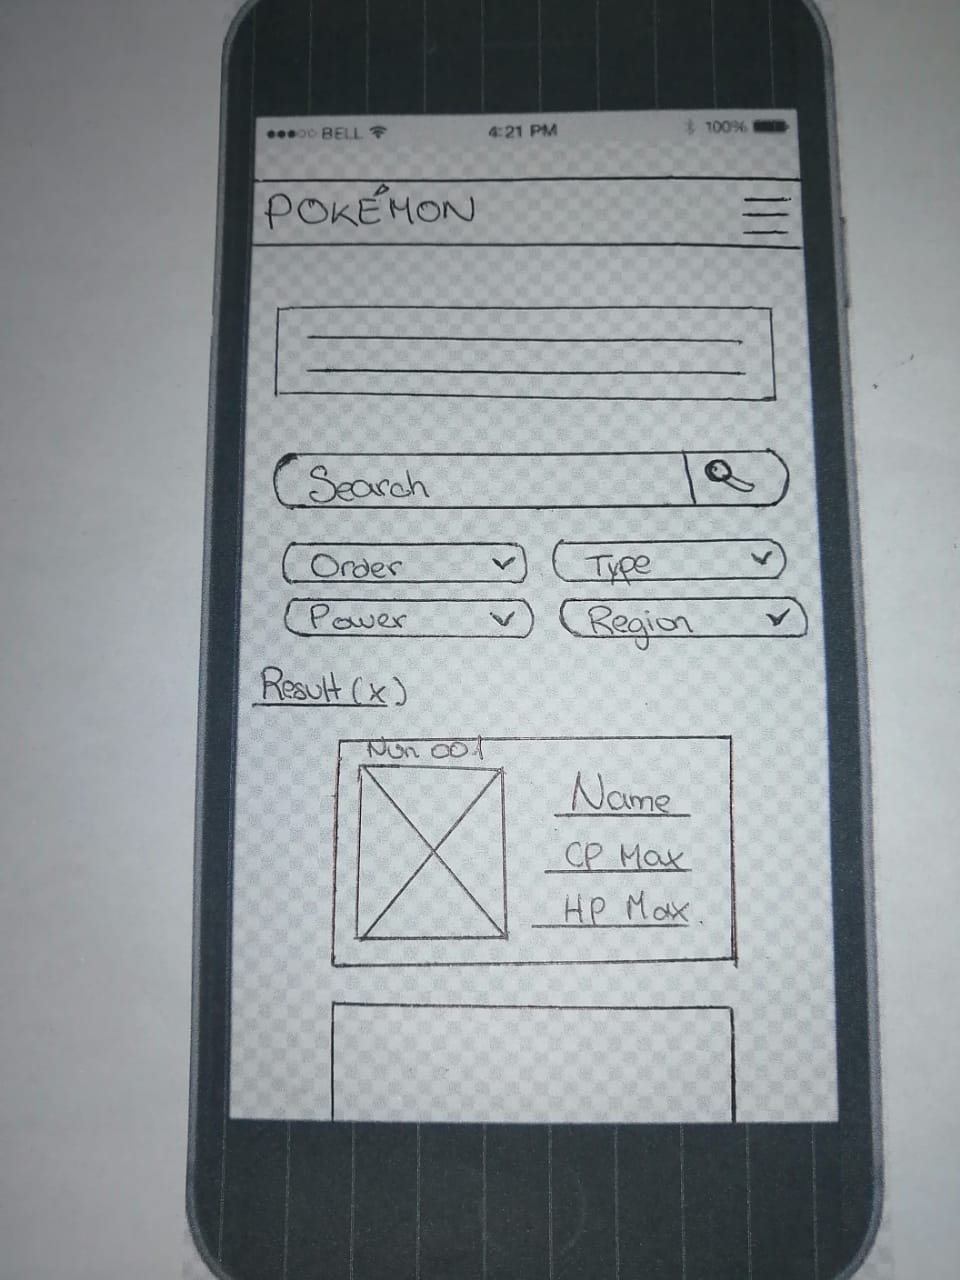 BELL 4:21 PM 100%
POKÉMON
Search
Order Type
Power Region
Result (x)
Num 001
Name
CP Max
HP Max.